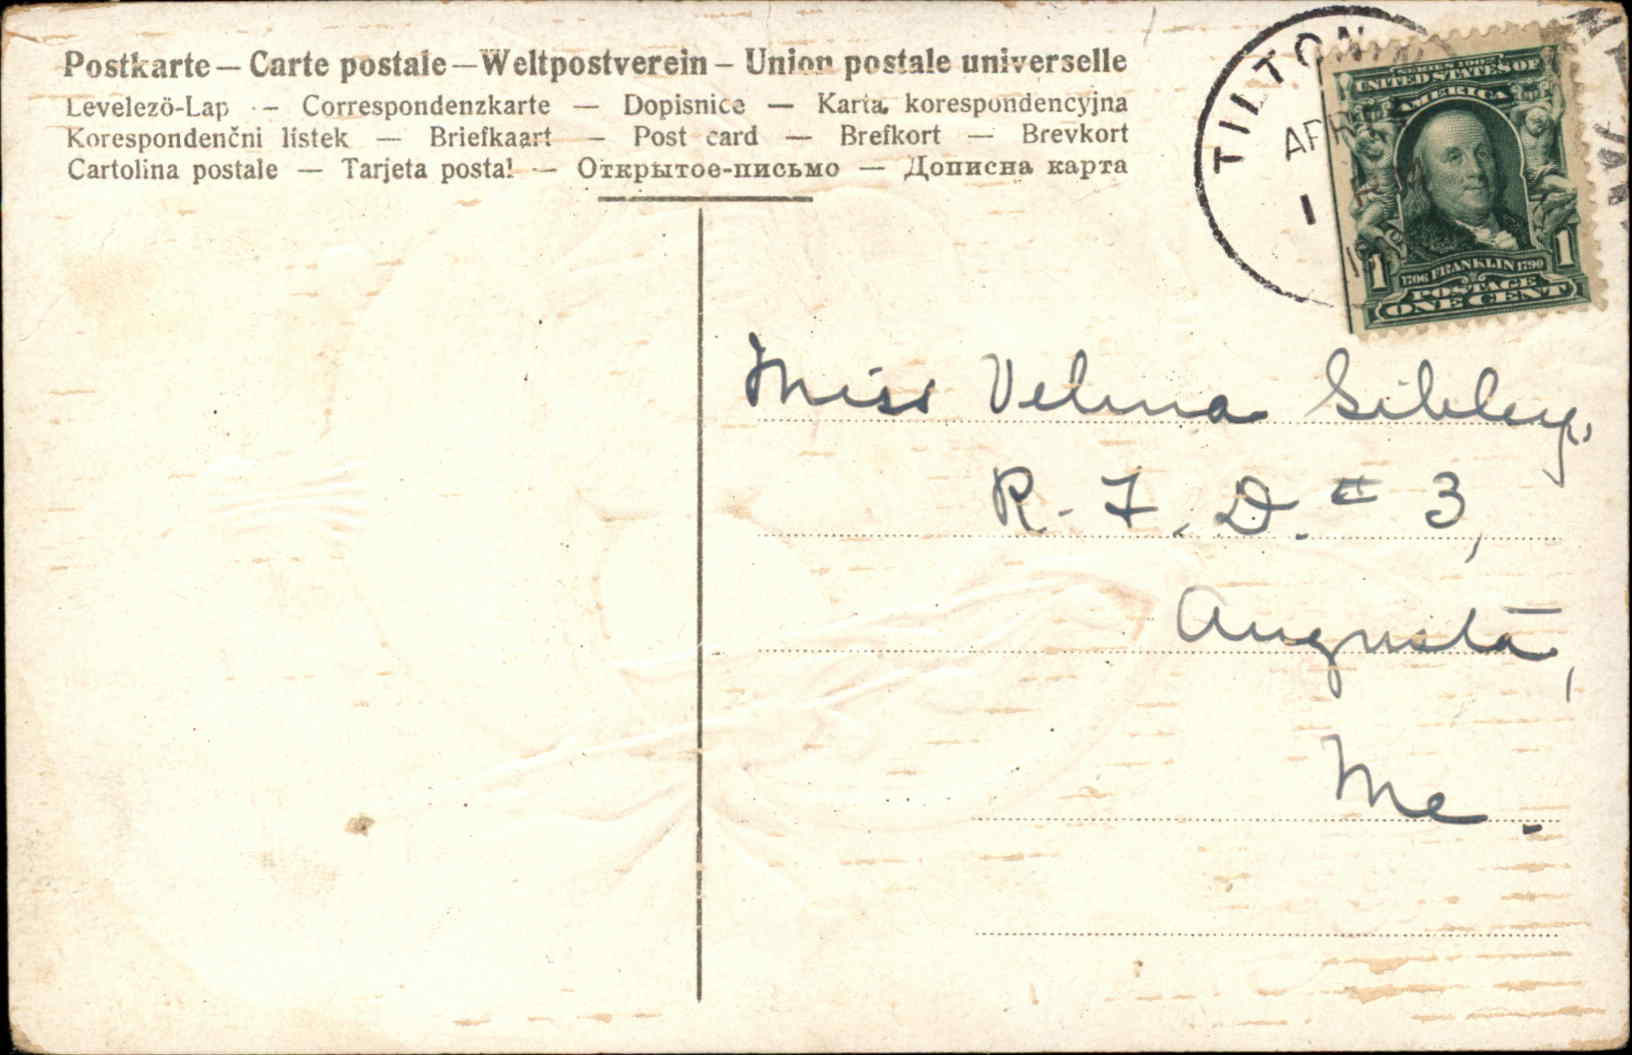 Postkarte – Carte postale – Weltpostverein – Union postale universelle
Levelező-Lap – Correspondenzkarte — Dopisnice — Karta korespondencyjna
Korespondenčni lístek — Briefkaart — Post card — Brefkort — Brevkort
Cartolina postale — Tarjeta postal — Открытое-письмо — Дописна карта
TILTON
APR
1
SERIES 1902
UNITED STATES OF
AMERICA
1 1
1706 FRANKLIN 1790
POSTAGE
ONE CENT
Miss Velma Sibley,
R. F. D. # 3,
Augusta,
Me.